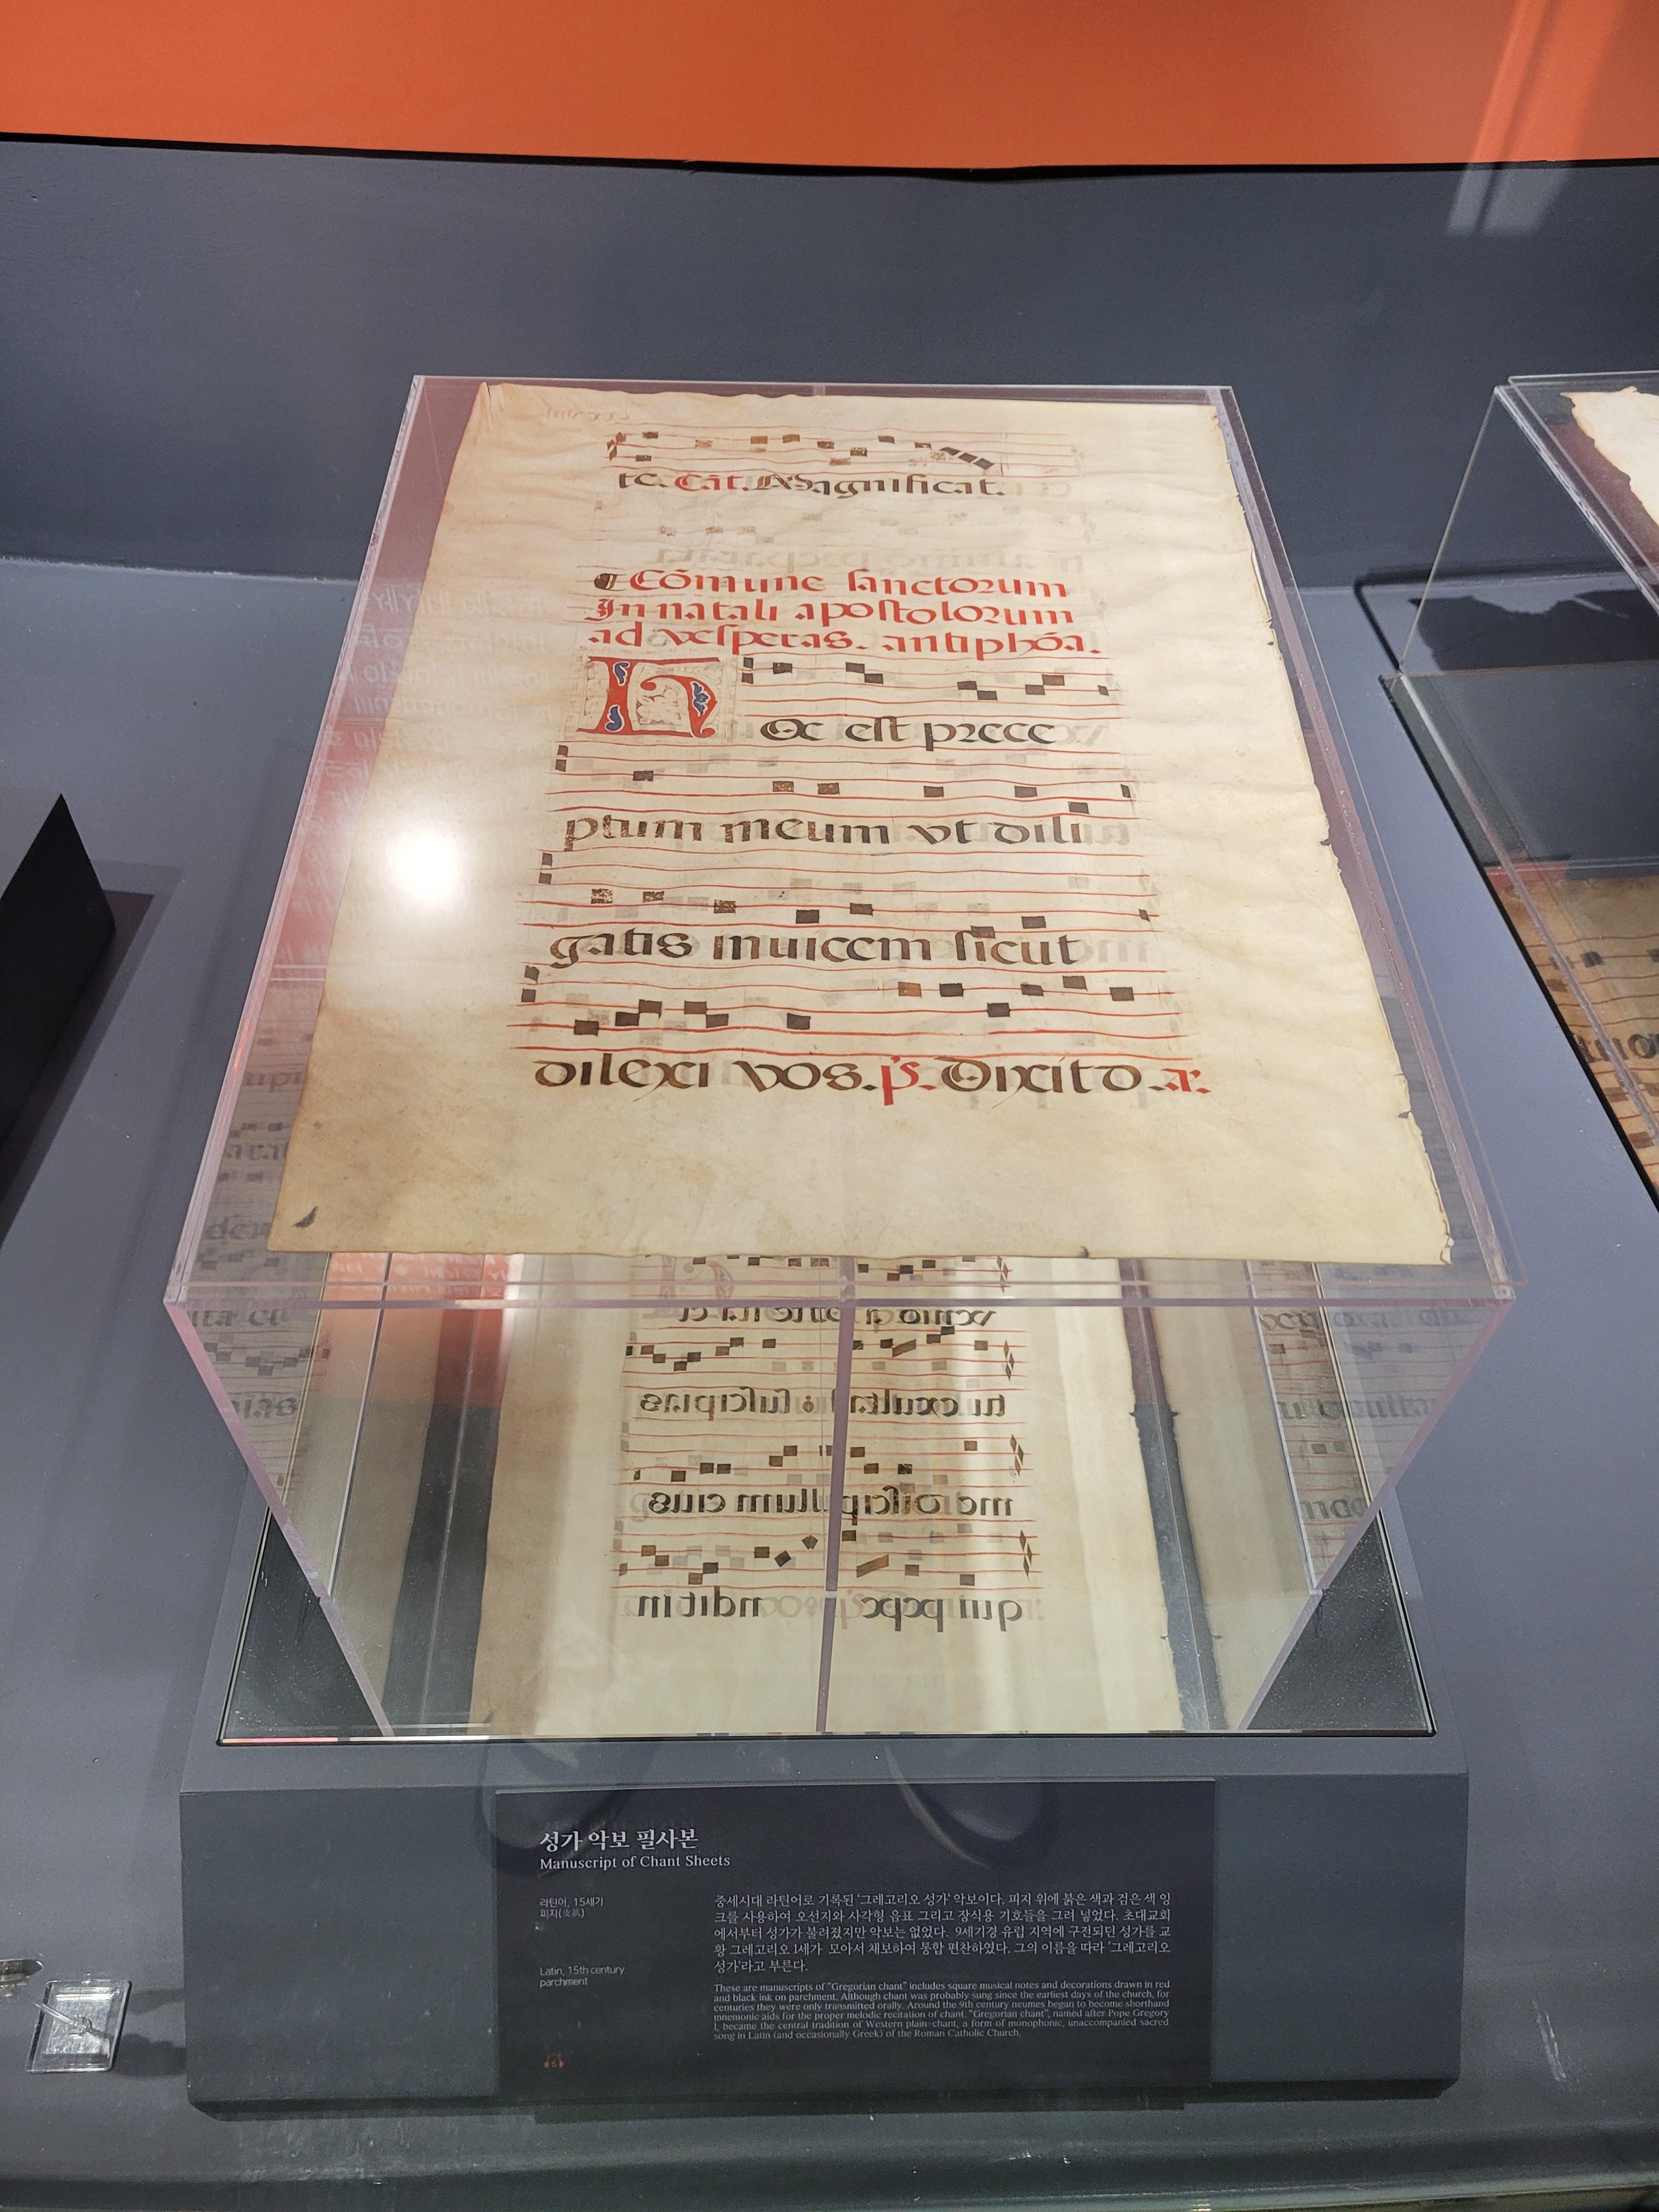 te. Cāt. Magnificat.
¶ Cōmune sanctorum
In natali apostolorum
ad vesperas. antiphōa.
Hoc est prece
ptum meum vt dili
gatis inuicem sicut
dilexi vos. ps. Dixit d. a.
venio
tu exulta : suscipiens
me discipulum eius
qui pepe ndit in
성가 악보 필사본
Manuscript of Chant Sheets
라틴어, 15세기
피지(皮紙)
Latin, 15th century
parchment
중세시대 라틴어로 기록된 '그레고리오 성가' 악보이다. 피지 위에 붉은 색과 검은 색 잉
크를 사용하여 오선지와 사각형 음표 그리고 장식용 기호들을 그려 넣었다. 초대교회
에서부터 성가가 불려졌지만 악보는 없었다. 9세기경 유럽 지역에 구전되던 성가를 교
황 그레고리오 1세가 모아서 채보하여 통합 편찬하였다. 그의 이름을 따라 '그레고리오
성가'라고 부른다.
These are manuscripts of "Gregorian chant" includes square musical notes and decorations drawn in red
and black ink on parchment. Although chant was probably sung since the earliest days of the church, for
centuries they were only transmitted orally. Around the 9th century neumes began to become shorthand
mnemonic aids for the proper melodic recitation of chant. "Gregorian chant", named after Pope Gregory
I, became the central tradition of Western plain-chant, a form of monophonic, unaccompanied sacred
song in Latin (and occasionally Greek) of the Roman Catholic Church.